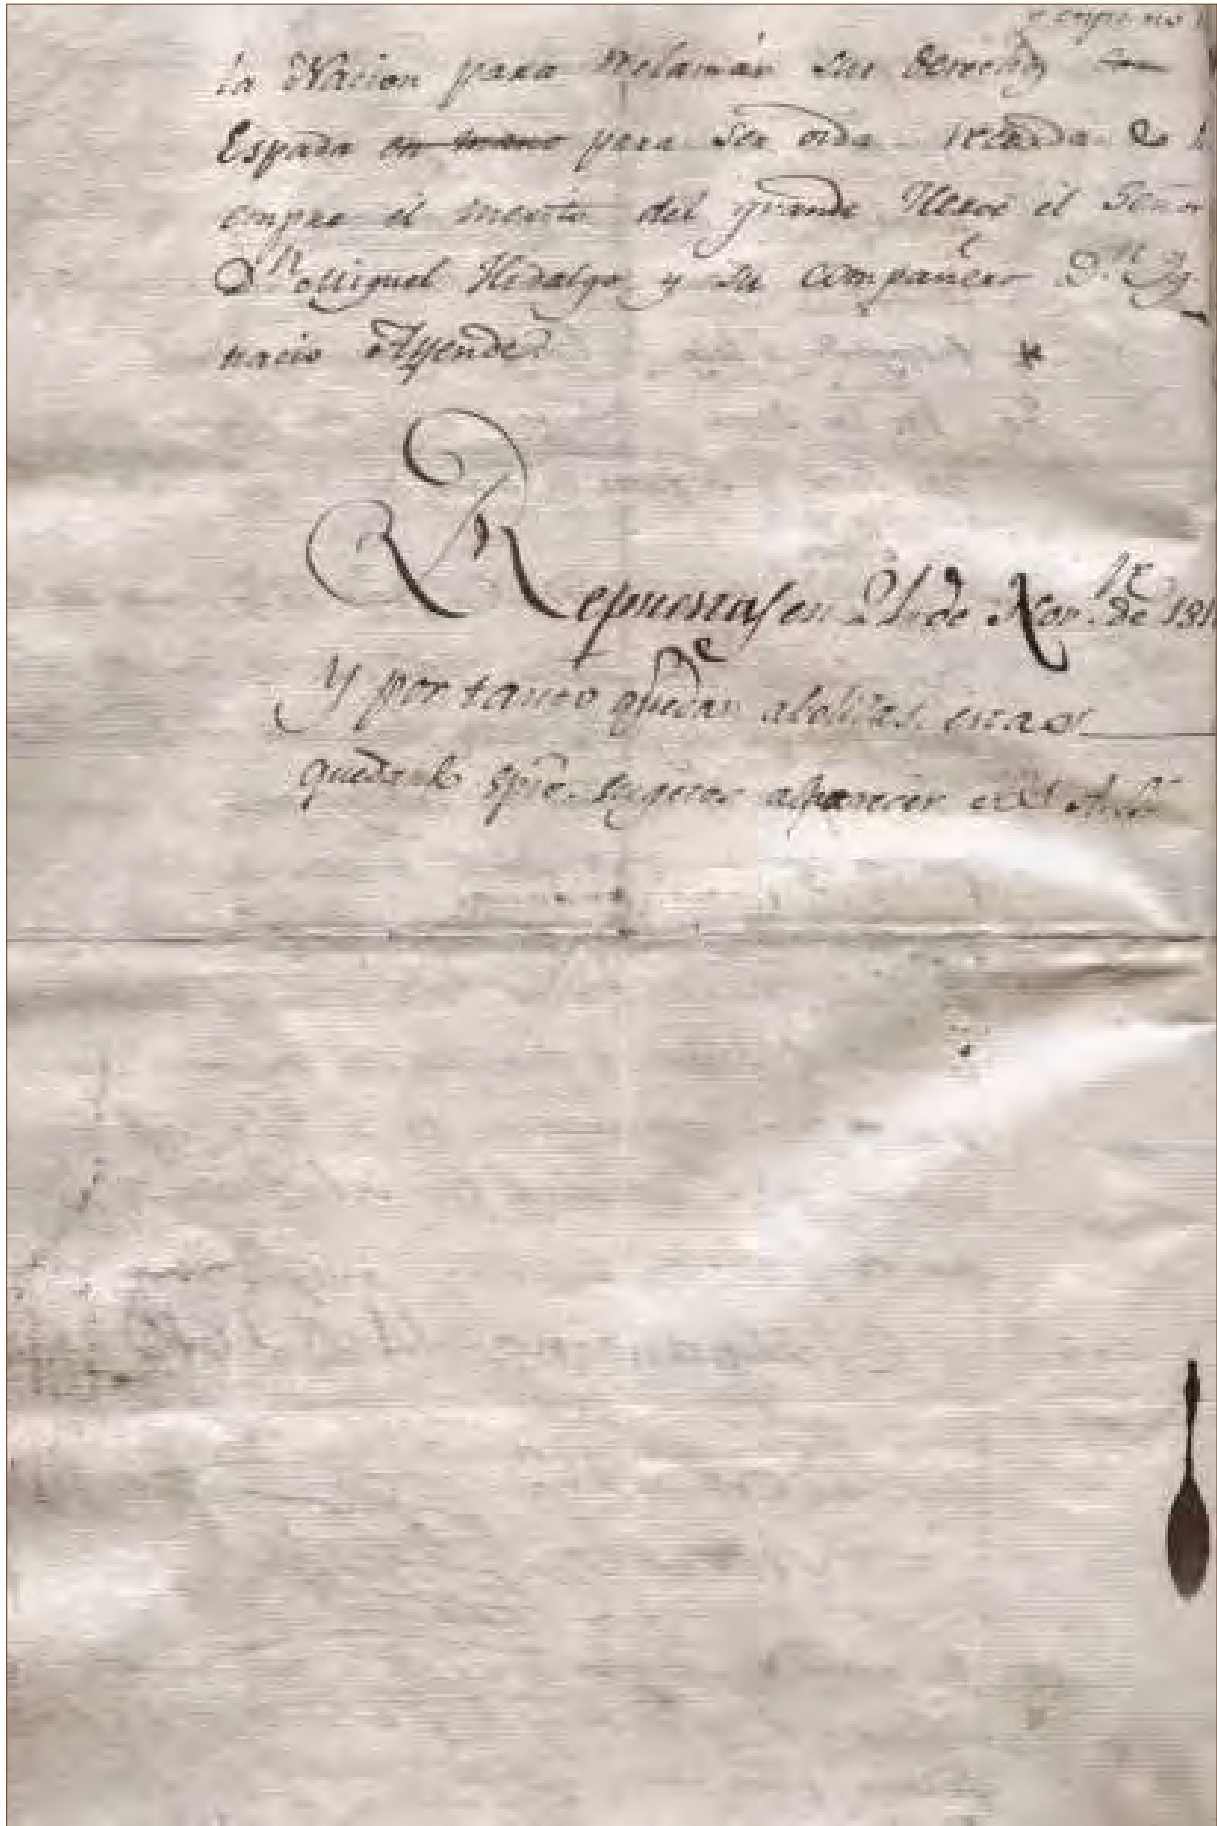 la Nacion para reclamár sus derechos con
Espada en mano para ser oida
empre el merito del grande Heroe el Señor
Dn Miguel Hidalgo y su compañero Dn Yg
nacio Ayende
Repuestas en 21 de Novre. de 181
Y por tanto quedan abolidas estas
quedando spre. sugetos a parecer